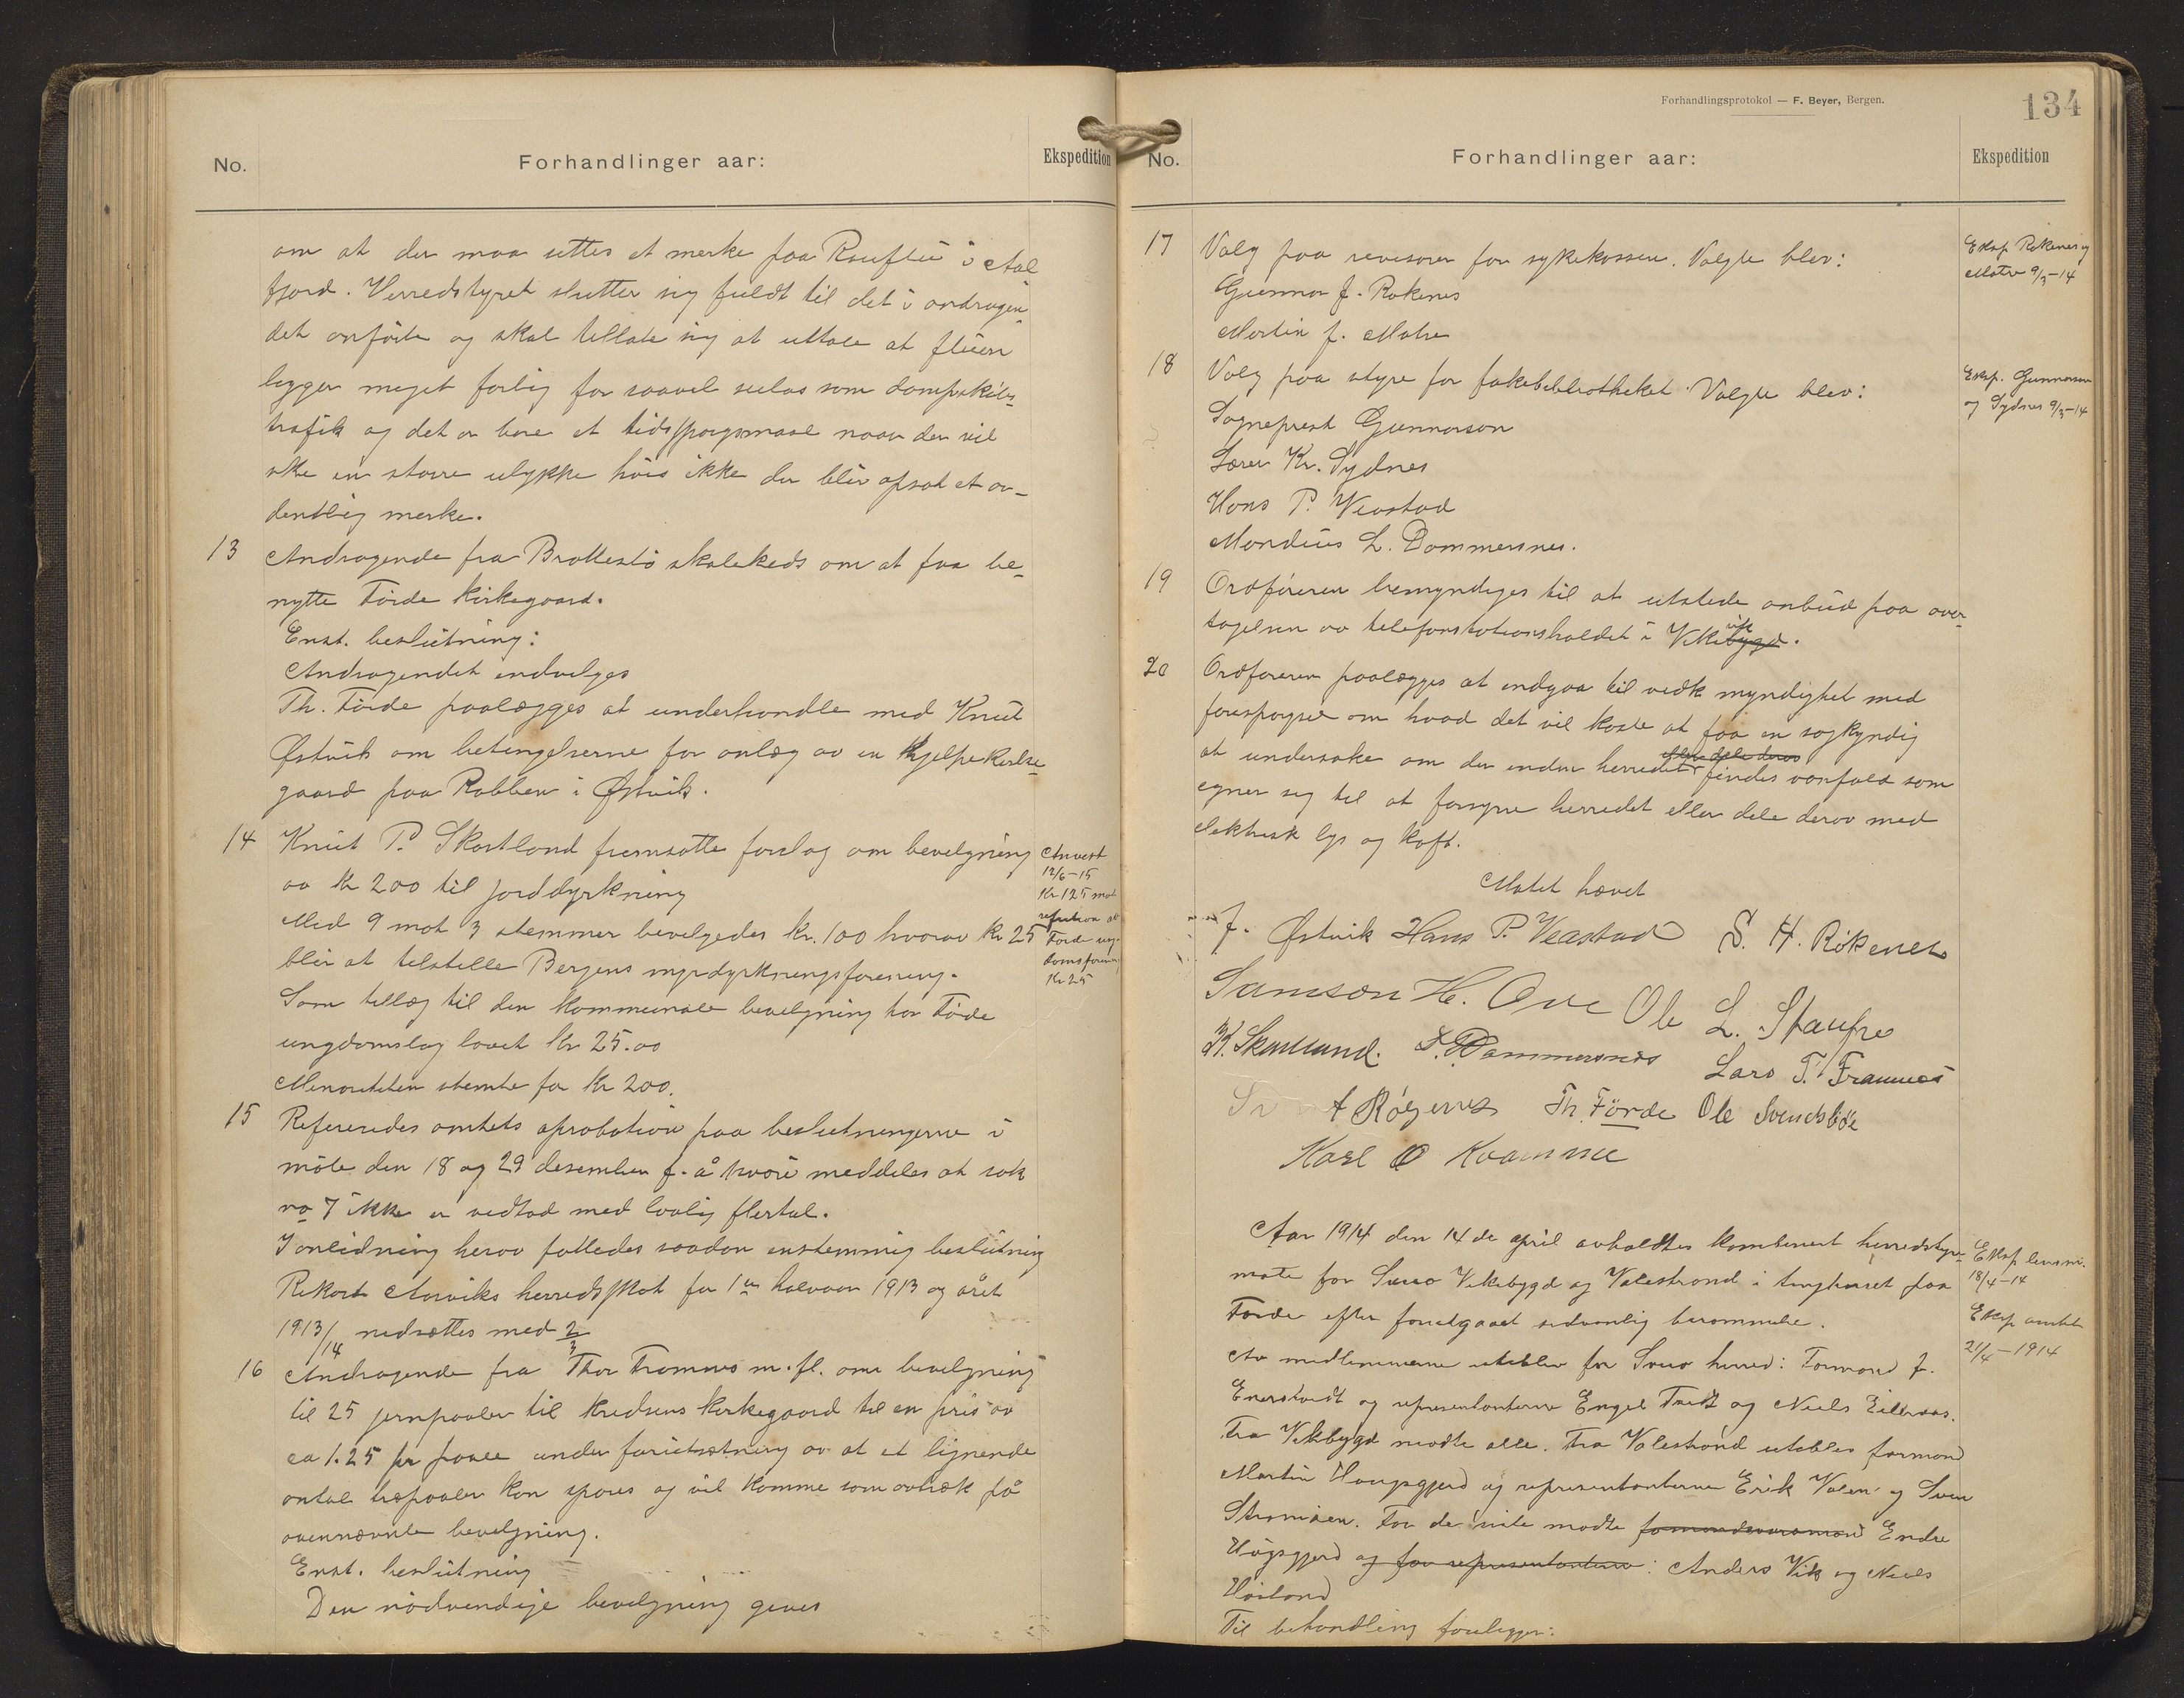 No.
Forhandlinger aar:
Ekspedition
om at der maa settes et merke paa Raufluö i Aal
fjord. Herredstyret slutter sig fuldt til det i andragen-
det anförte og skal tillate sig at uttale at flúen
ligger meget farlig for saavel seilas som dampskibs-
trafik og det er bare et tidsspörgsmaal naar der vil
ske en större ulykke hvis ikke der blir opsat et or-
dentlig merke.
13 Andragende fra Brattestö skolekreds om at faa be-
nytte Förde kirkegaard.
Enst. beslutning:
Andragendet indvilges
Th. Förde paalægges at underhandle med Knut
Østvik om betingelserne for anlæg av en hjelpekirke-
gaard paa Rabben i Østvik.
14 Knut P. Skartland fremsatte forslag om bevilgning
av kr 200 til jorddyrkning
Med 9 mot 3 stemmer bevilgedes kr. 100 hvorav kr 25
blir at tilstille Bergens myrdyrkningsforening.
Som tillæg til den kommunale bevilgning har Förde
ungdomslag lovet kr 25.00
Minoriteten stemte for kr 200.
Anvist
12/6-15
Kr 125 mot
refusion av
Förde ung-
domsforening
Kr 25
15 Refereredes amtets aprobation paa beslutningerne i
möte den 18 og 29 desember f. å hvori meddeles at sak
no 7 ikke er vedtad med lovlig flertal.
I anledning herav fattedes saadan enstemmig beslutning
Rikard Aarviks herredsskat for 1ste halvaar 1913 og året
1913/14 nedsættes med 2/3
16 Andragende fra Thor Framnes m. fl. om bevilgning
til 25 jernpaaler til kredsens kirkegaard til en pris av
ca 1.25 pr paale under forutsætning av at et lignende
antal træpaaler kan spares og vil komme som avtræk på
ovennævnte bevilgning.
Enst. beslutning
Den nödvendige bevilgning gives
Forhandlingsprotokol — F. Beyer, Bergen.
134
No.
Forhandlinger aar:
Ekspedition
17 Valg paa revisorer for sykekassen. Valgte blev:
Gunnar J. Rökenes
Martin J. Matre
Eksp Rökenes og
Matre 9/3-14
18 Valg paa styre for folkebibliotheket. Valgte blev:
Sogneprest Gunnarson
Lærer Kr. Sydnes
Hans P. Veastad
Mandius L. Dommersnes.
Eksp. Gunnarson
og Sydnes 9/3-14
19 Ordföreren bemyndiges til at utstede anbud paa over-
tagelsen av telefonstationsholdet i Vikebygd vik.
20 Ordföreren paalægges at indgaa til vedk myndighet med
forespörgsel om hvad det vil koste at faa en sagkyndig
at undersöke om der inden herredet eller dele derav findes vandfald som
egner sig til at forsyne herredet eller dele derav med
elektrisk lys og kraft.
Mötet hævet
J. Østvik Hans P. Veastad S. H. Rökenes
Samson H. Ove Ole L. Staupe
K. Skartland. L. Dommersnes Lars T. Framnes
A Røgenes Th. Förde Ole Svendsböe
Karl O Kvamme
Aar 1914 den 14de april avholdtes kombinert herredstyre-
möte for Sveio Vikebygd og Valestrand i tinghuset paa
Förde efter forutgaaet sedvanlig berammelse.
Eksp lensm.
18/4-14
Eksp amtet
21/4-1914
Av medlemmerne uteblev for Sveio herred: Formand J.
Enerstvedt og representanterne Engel Tveit og Niels Eileraas.
Fra Vikebygd mödte alle. Fra Valestrand uteblev formand
Martin Haugsgjerd og representanterne Erik Valen og Sven
Strömöen. For de siste mödte formandsvaramand Endre
Högsgjerd og for representanterne: Anders Vik og Niels
Höiland
Til behandling foreligger: